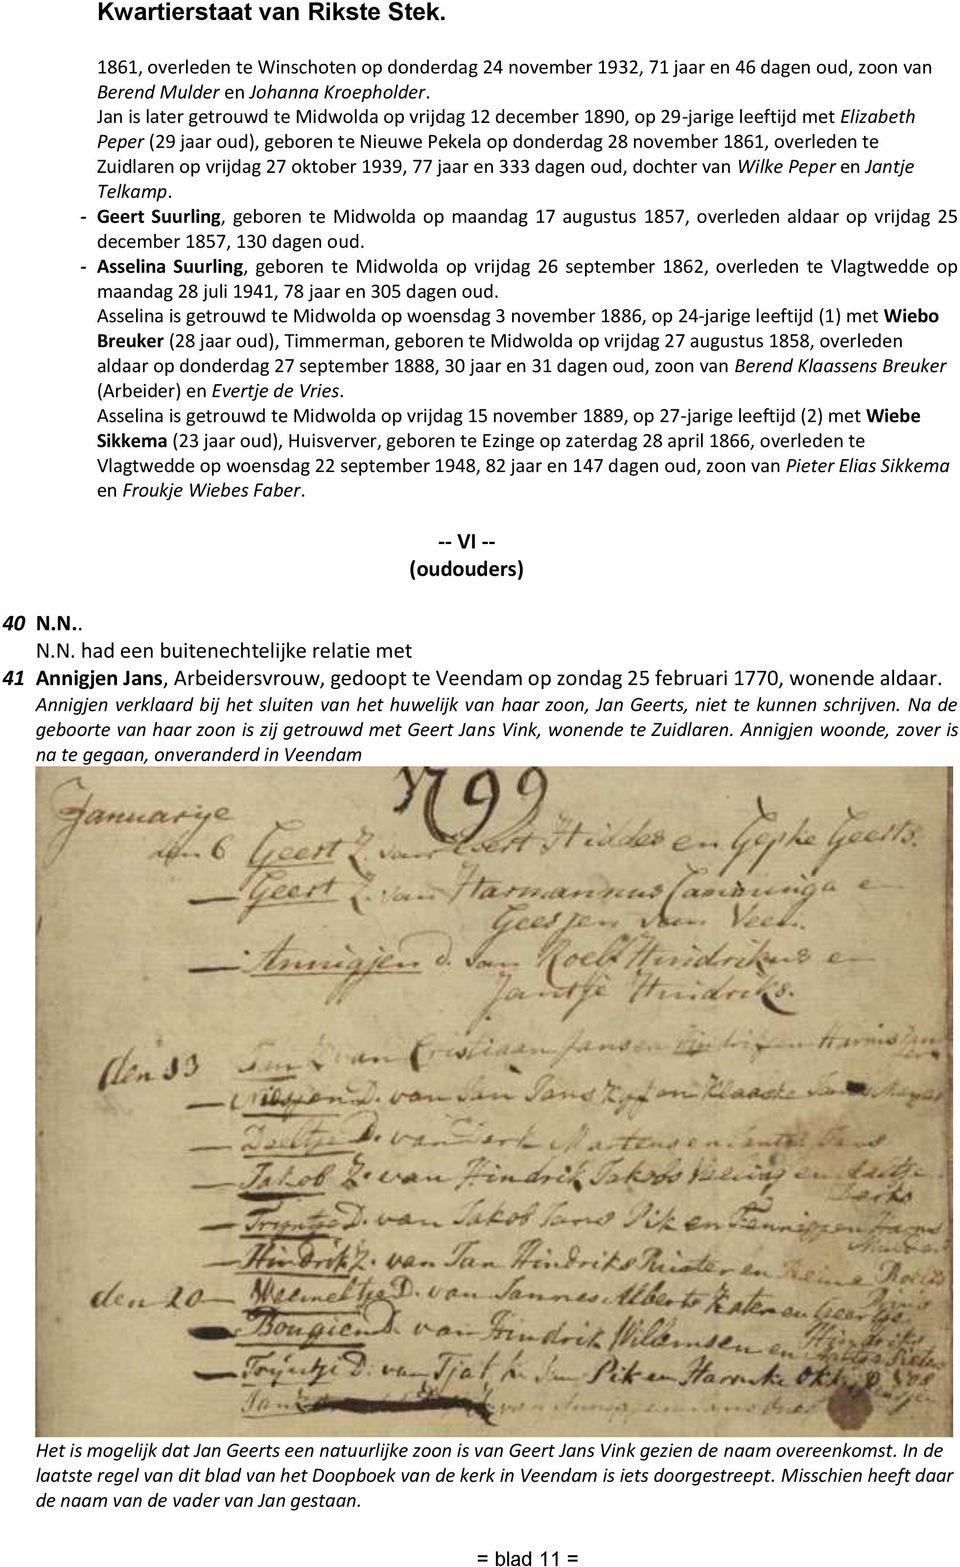 Kwartierstaat van Rikste Stek.
1861, overleden te Winschoten op donderdag 24 november 1932, 71 jaar en 46 dagen oud, zoon van
Berend Mulder en Johanna Kroepholder.
Jan is later getrouwd te Midwolda op vrijdag 12 december 1890, op 29-jarige leeftijd met Elizabeth
Peper (29 jaar oud), geboren te Nieuwe Pekela op donderdag 28 november 1861, overleden te
Zuidlaren op vrijdag 27 oktober 1939, 77 jaar en 333 dagen oud, dochter van Wilke Peper en Jantje
Telkamp.
- Geert Suurling, geboren te Midwolda op maandag 17 augustus 1857, overleden aldaar op vrijdag 25
december 1857, 130 dagen oud.
- Asselina Suurling, geboren te Midwolda op vrijdag 26 september 1862, overleden te Vlagtwedde op
maandag 28 juli 1941, 78 jaar en 305 dagen oud.
Asselina is getrouwd te Midwolda op woensdag 3 november 1886, op 24-jarige leeftijd (1) met Wiebo
Breuker (28 jaar oud), Timmerman, geboren te Midwolda op vrijdag 27 augustus 1858, overleden
aldaar op donderdag 27 september 1888, 30 jaar en 31 dagen oud, zoon van Berend Klaassens Breuker
(Arbeider) en Evertje de Vries.
Asselina is getrouwd te Midwolda op vrijdag 15 november 1889, op 27-jarige leeftijd (2) met Wiebe
Sikkema (23 jaar oud), Huisverver, geboren te Ezinge op zaterdag 28 april 1866, overleden te
Vlagtwedde op woensdag 22 september 1948, 82 jaar en 147 dagen oud, zoon van Pieter Elias Sikkema
en Froukje Wiebes Faber.
-- VI --
(oudouders)
40 N.N..
N.N. had een buitenechtelijke relatie met
41 Annigjen Jans, Arbeidersvrouw, gedoopt te Veendam op zondag 25 februari 1770, wonende aldaar.
Annigjen verklaard bij het sluiten van het huwelijk van haar zoon, Jan Geerts, niet te kunnen schrijven. Na de
geboorte van haar zoon is zij getrouwd met Geert Jans Vink, wonende te Zuidlaren. Annigjen woonde, zover is
na te gegaan, onveranderd in Veendam
1799
Januarije
den 6 Geert Z. van Evert Hiddes en Gepke Geerts.
Geert Z. van Harmannus Camminga e
Geesjen van Veen.
Annigjen d. van Roelf Hindrikus en
Jantje Hindriks.
den 13 Jan Z van Cristiaan Jansen Harms
D. van Jan Jans en Klaaske
Deeltje D. van Derk Martens en Jans
Jakob Z. van Hindrik Jakobs en
Derks
Tryntje D. van Jakob Jans Pik en Harms
Hindrik Z. van Jan Hindriks Ruiter en Roelfs
den 20 D. van Jannes Alberts Kater en Geertje
D. van Hindrik Willemsen en Hindriks
Tryntje D. van Pik en Harmke
Jan Z.
Het is mogelijk dat Jan Geerts een natuurlijke zoon is van Geert Jans Vink gezien de naam overeenkomst. In de
laatste regel van dit blad van het Doopboek van de kerk in Veendam is iets doorgestreept. Misschien heeft daar
de naam van de vader van Jan gestaan.
= blad 11 =